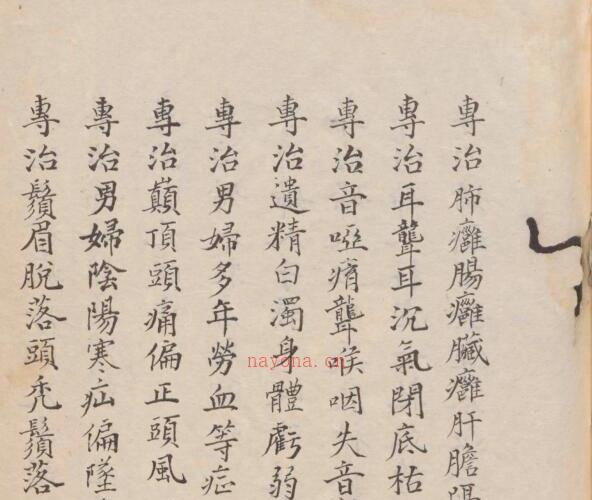 專治肺癰腸癰臟癰肝膽
專治耳聾耳沉氣閉底枯
專治音啞瘖聾喉咽失音
專治遺精白濁身體虧弱
專治男婦多年勞血等症
專治巔頂頭痛偏正頭風
專治男婦陰陽寒疝偏墜
專治鬚眉脫落頭禿鬚落
nayona.cn